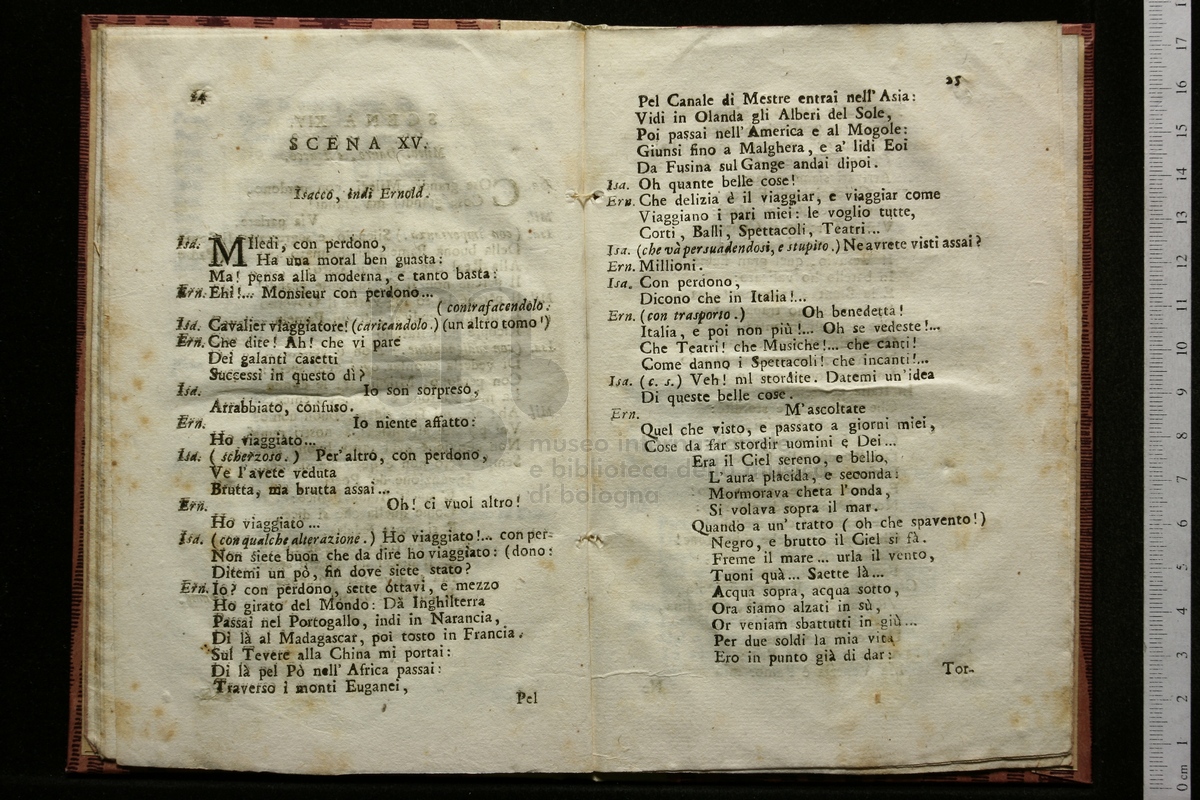 24
SCENA XV.
Isacco, indi Ernold.
Isa. Miledi, con perdono,
Ha una moral ben guasta:
Ma! pensa alla moderna, e tanto basta:
Ern. Ehi!... Monsieur con perdono...
(contrafacendolo:
Isa. Cavalier viaggiatore! (caricandolo.) (un altro tomo!)
Ern. Che dite! Ah! che vi pare
Dei galanti casetti
Successi in questo dì?
Isa. Io son sorpreso,
Arrabbiato, confuso.
Ern. Io niente affatto:
Ho viaggiato...
Isa. (scherzoso.) Per altro, con perdono,
Ve l'avete veduta
Brutta, ma brutta assai...
Ern. Oh! ci vuol altro!
Ho viaggiato...
Isa. (con qualche alterazione.) Ho viaggiato!... con per-
Non siete buon che da dire ho viaggiato: (dono:
Ditemi un pò, fin dove siete stato?
Ern. Io? con perdono, sette ottavi, e mezzo
Ho girato del Mondo: Dà Inghilterra
Passai nel Portogallo, indi in Narancia,
Di là al Madagascar, poi tosto in Francia.
Sul Tevere alla China mi portai:
Di là pel Pò nell' Africa passai:
Traverso i monti Euganei,
Pel
25
Pel Canale di Mestre entrai nell' Asia:
Vidi in Olanda gli Alberi del Sole,
Poi passai nell' America e al Mogole:
Giunsi fino a Malghera, e a' lidi Eoi
Da Fusina sul Gange andai dipoi.
Isa. Oh quante belle cose!
Ern. Che delizia è il viaggiar, e viaggiar come
Viaggiano i pari miei: le voglio tutte,
Corti, Balli, Spettacoli, Teatri...
Isa. (che và persuadendosi, e stupito.) Ne avrete visti assai?
Ern. Millioni.
Isa. Con perdono,
Dicono che in Italia!...
Ern. (con trasporto.) Oh benedetta!
Italia, e poi non più!... Oh se vedeste!...
Che Teatri! che Musiche!... che canti!
Come danno i Spettacoli! che incanti!...
Isa. (c. s.) Veh! mi stordite. Datemi un'idea
Di queste belle cose.
Ern. M'ascoltate
Quel che visto, e passato a giorni miei,
Cose da far stordir uomini e Dei...
Era il Ciel sereno, e bello,
L'aura placida, e seconda:
Mormorava cheta l'onda,
Si volava sopra il mar.
Quando a un' tratto (oh che spavento!)
Negro, e brutto il Ciel si fà.
Freme il mare... urla il vento,
Tuoni quà... Saette là...
Acqua sopra, acqua sotto,
Ora siamo alzati in sù,
Or veniam sbattutti in giù...
Per due soldi la mia vita
Ero in punto già di dar:
Tor-
museo in
e biblioteca de
di bologna